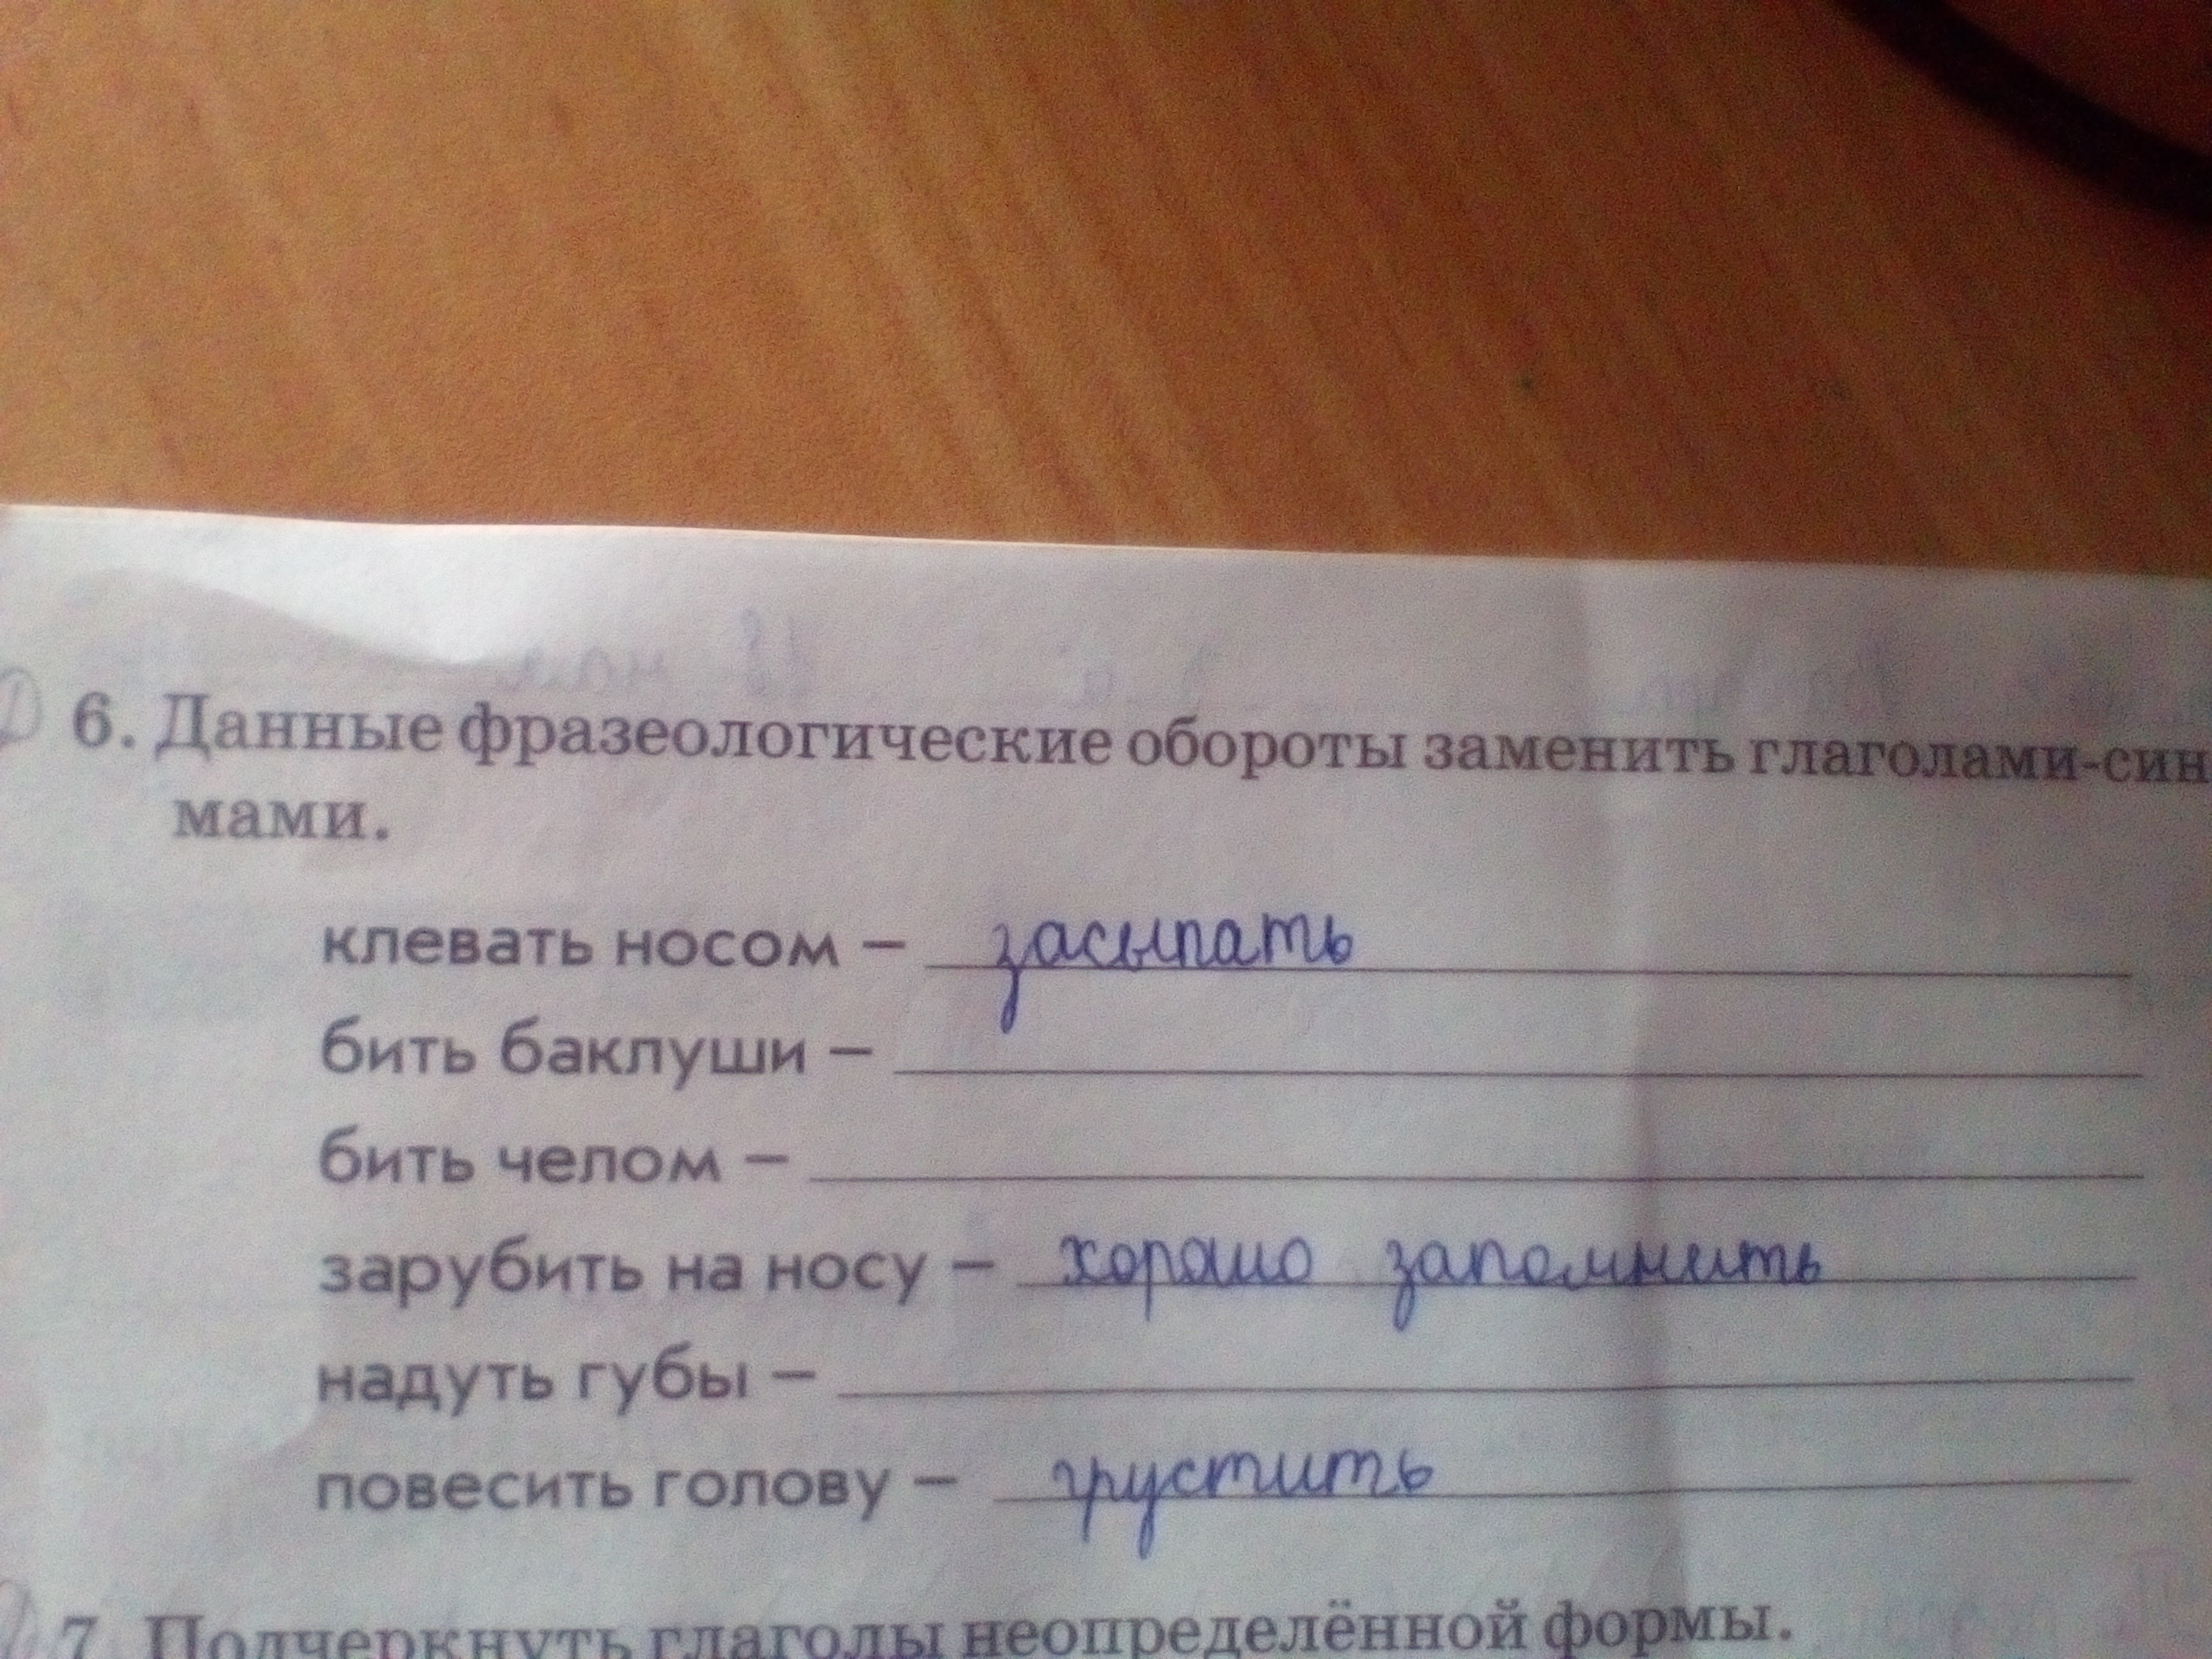 6. Данные фразеологические обороты заменить глаголами-син
мами.
клевать носом – засыпать
бить баклуши –
бить челом –
зарубить на носу – хорошо запомнить
надуть губы –
повесить голову – грустить
7. Подчеркнуть глаголы неопределённой формы.